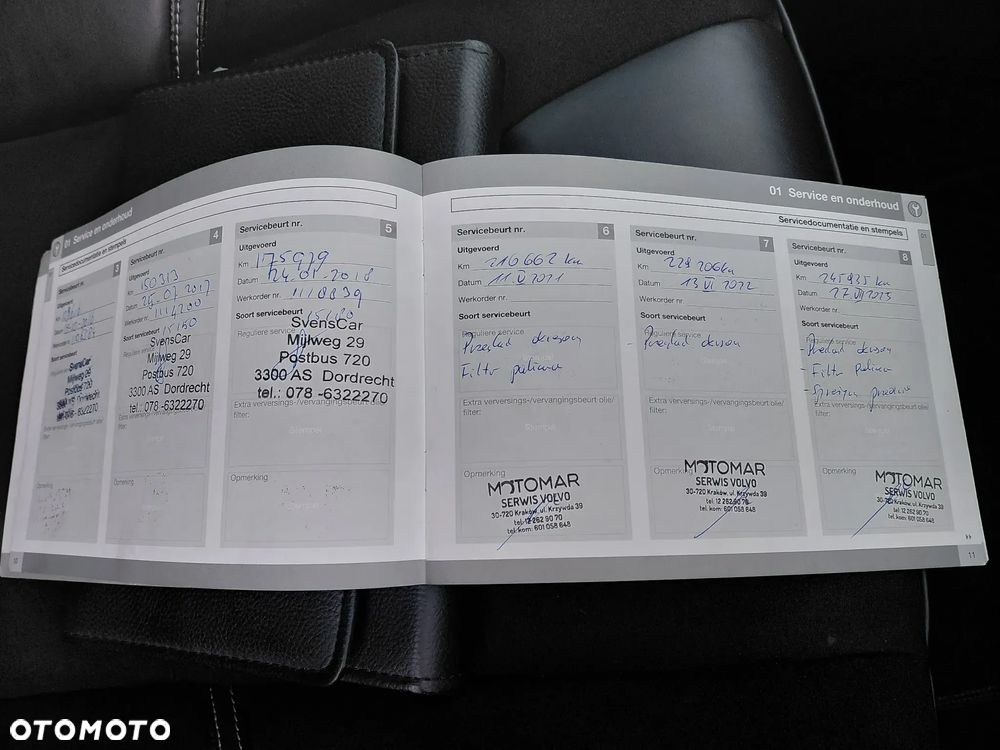 01 Service en onderhoud
Servicedocumentatie en stempels
3
Servicebeurt nr.
Uitgevoerd
Km
Datum
Werkorder nr.
Soort servicebeurt
SvensCar
Mijlweg 29
Postbus 720
3300 AS Dordrecht
tel.: 078 -6322270
4
Servicebeurt nr.
Uitgevoerd
Km 150313
Datum 25.07.2017
Werkorder nr. 1114200
Soort servicebeurt
15150
SvensCar
Mijlweg 29
Postbus 720
3300 AS Dordrecht
tel.: 078 -6322270
Extra verversings-/vervangingsbeurt olie/
filter:
Opmerking
5
Servicebeurt nr.
Uitgevoerd
Km 175979
Datum 24.01.2018
Werkorder nr. 1118839
Soort servicebeurt
Reguliere service
SvensCar
Mijlweg 29
Postbus 720
3300 AS Dordrecht
tel.: 078 -6322270
Extra verversings-/vervangingsbeurt olie/
filter:
Stempel
Opmerking
Stempel
10
01 Service en onderhoud
Servicedocumentatie en stempels
01
6
Servicebeurt nr.
Uitgevoerd
Km 210662 km
Datum 11.V 2021
Werkorder nr.
Soort servicebeurt
Reguliere service
Przegląd okresowy
Filtr paliwa
Extra verversings-/vervangingsbeurt olie/
filter:
Stempel
Opmerking
MOTOMAR
SERWIS VOLVO
30-720 Kraków, ul. Krzywda 39
tel: 12 262 90 70
tel. kom: 601 058 648
7
Servicebeurt nr.
Uitgevoerd
Km 228206km
Datum 13 VI 2022
Werkorder nr.
Soort servicebeurt
Reguliere service
- Przegląd okresowy
Extra verversings-/vervangingsbeurt olie/
filter:
Stempel
Opmerking
MOTOMAR
SERWIS VOLVO
30-720 Kraków, ul. Krzywda 39
tel: 12 262 90 70
tel. kom: 601 058 648
8
Servicebeurt nr.
Uitgevoerd
Km 245935 km
Datum 27 VI 2023
Werkorder nr.
Soort servicebeurt
Reguliere service
- Przegląd okresowy
- Filtr paliwa
Extra verversings-/vervangingsbeurt olie/
filter:
Stempel
Opmerking
MOTOMAR
SERWIS VOLVO
30-720 Kraków, ul. Krzywda 39
tel: 12 262 90 70
tel. kom: 601 058 648
11
OTOMOTO